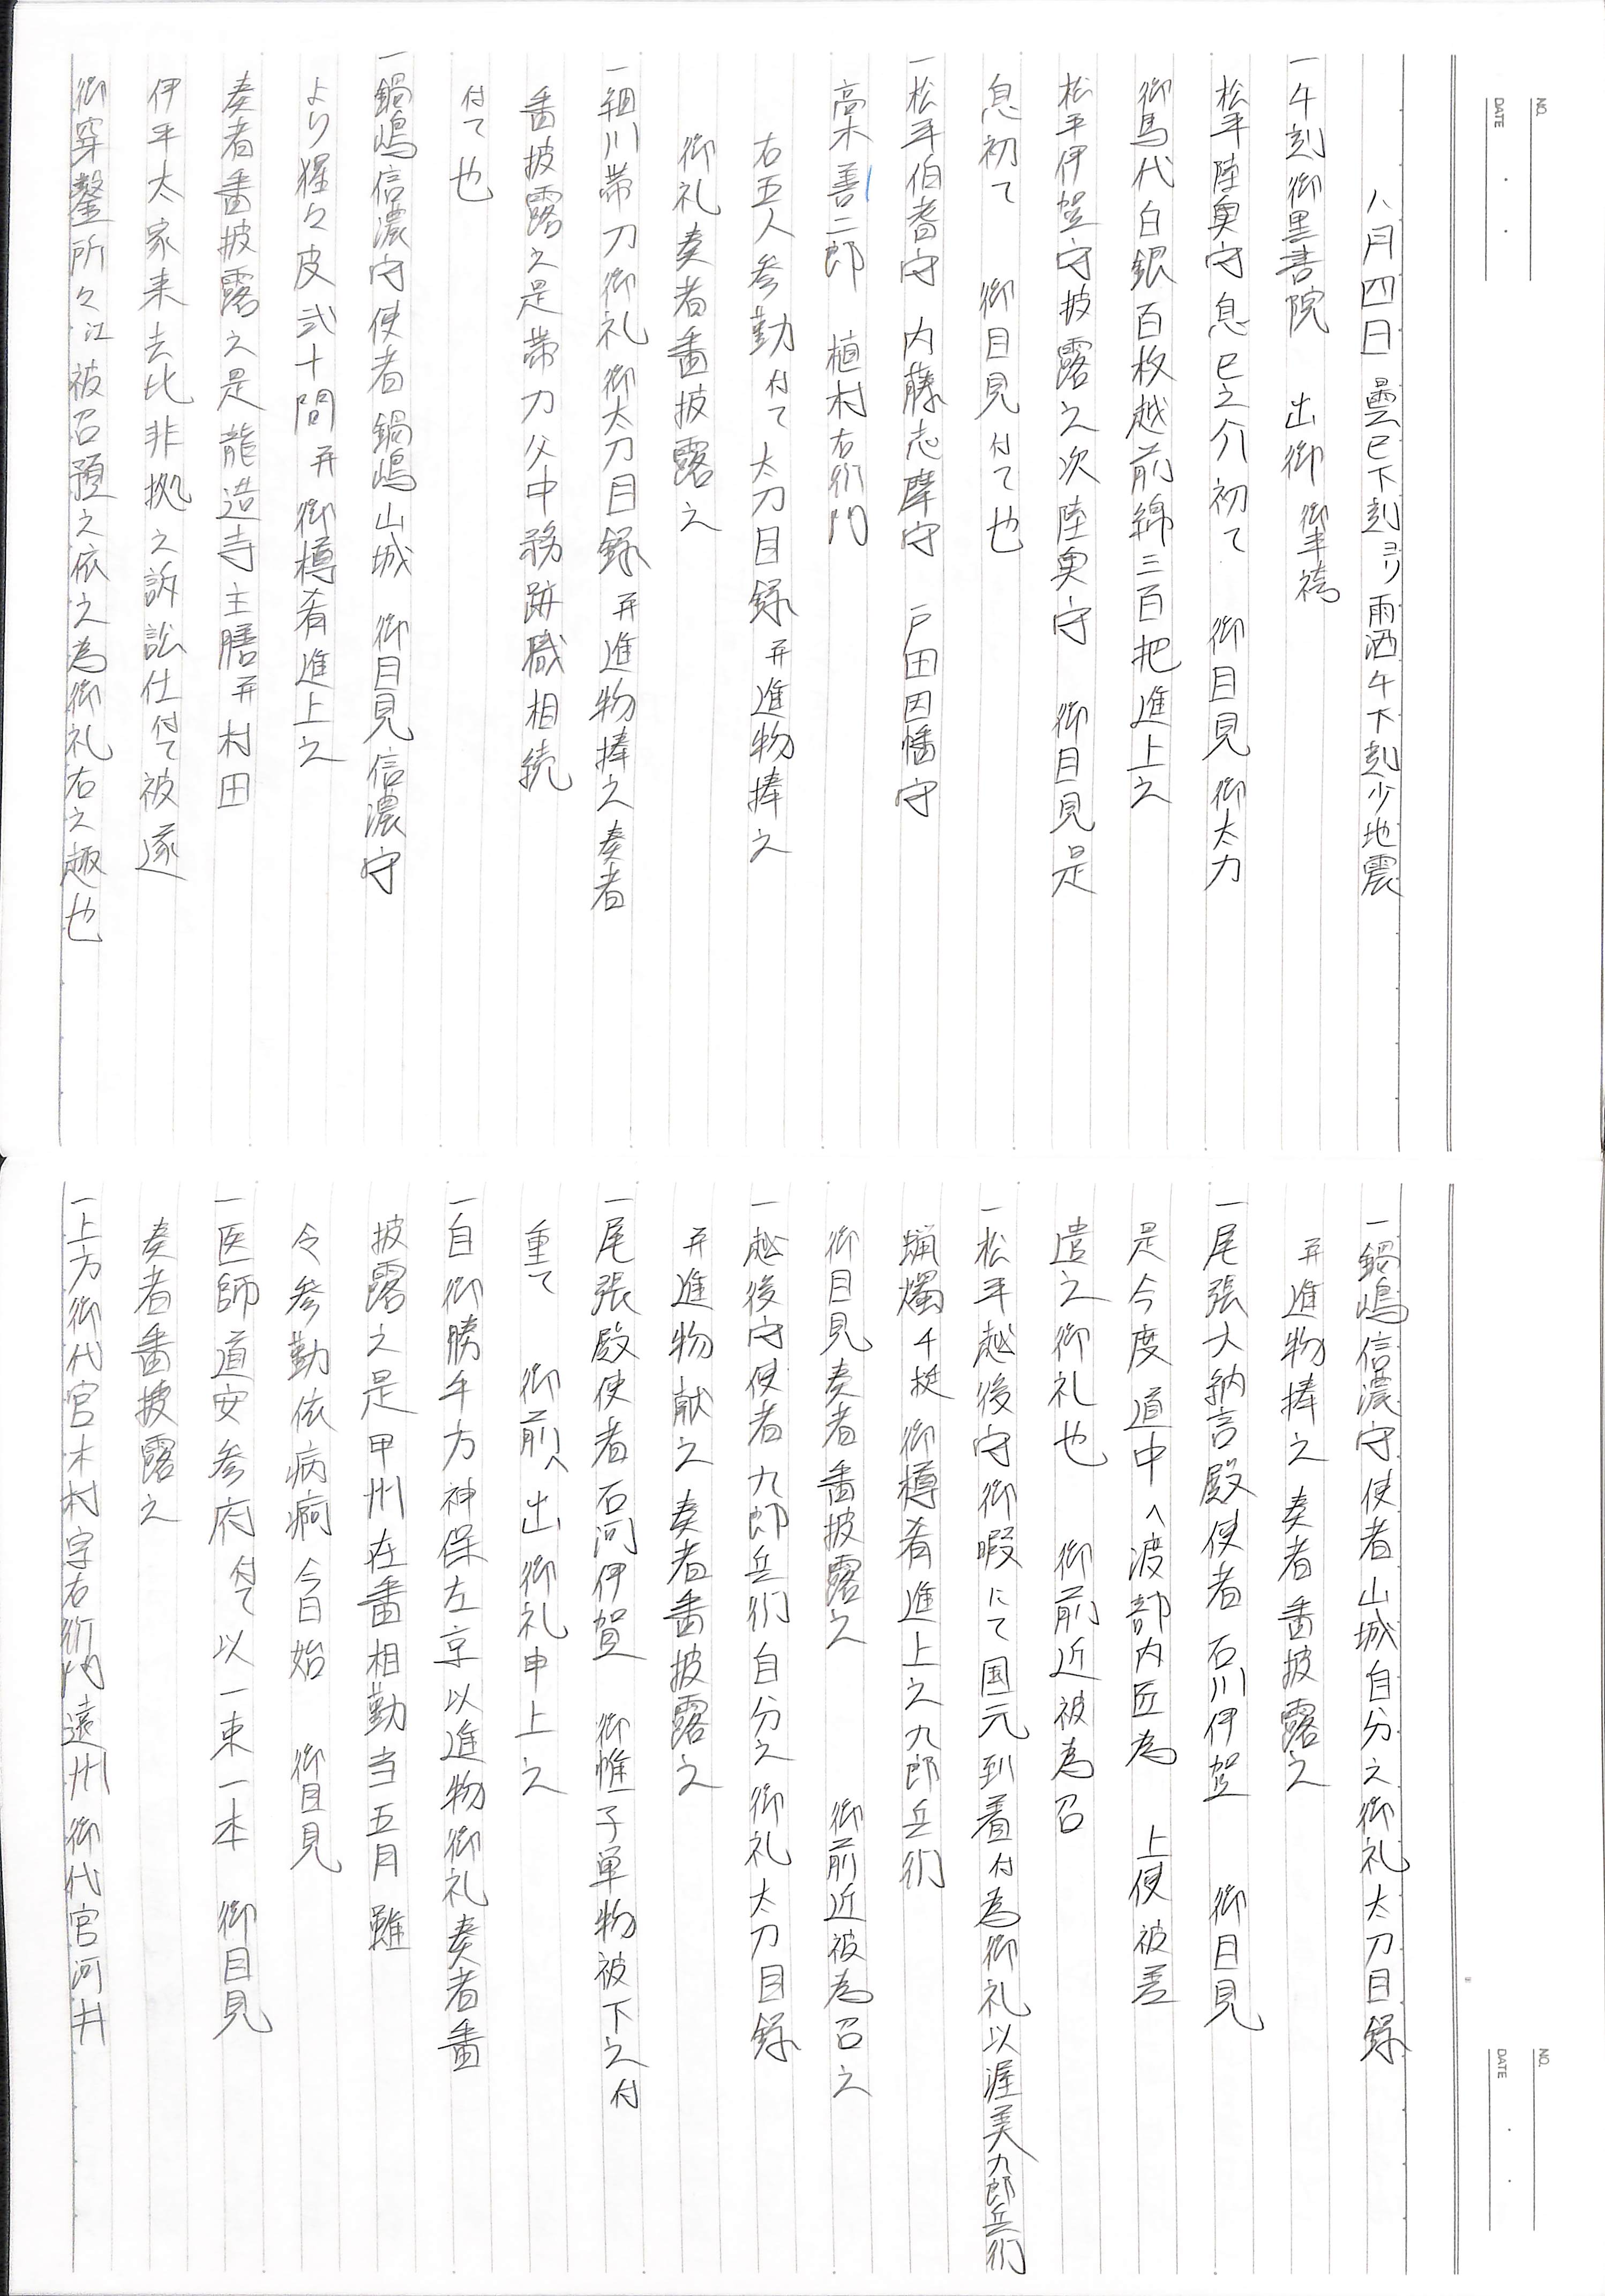 NO.
DATE
八月四日 曇巳下刻ヨリ雨洒午下刻少地震
一午刻御黒書院 出御 御半袴
松平陸奥守息巳之介初て 御目見御太刀
御馬代白銀百枚越前綿三百把進上之
松平伊賀守披露之次陸奥守 御目見是
息初て 御目見付て也
一松平伯耆守 内藤志摩守 戸田因幡守
高木善二郎 植村右衛門
右五人参勤付て太刀目録并進物捧之
御礼奏者番披露之
一細川帯刀御礼御太刀目録并進物捧之奏者
番披露之是帯刀父中務跡職相続
付て也
一鍋嶋信濃守使者鍋嶋山城 御目見信濃守
より猩々皮弐十間并御樽肴進上之
奏者番披露之是龍造寺主膳并村田
伊平太家来去比非拠之訴訟仕付て被遂
御穿鑿所々江被召預之依之為御礼右之趣也
NO.
DATE
一鍋嶋信濃守使者山城自分之御礼太刀目録
并進物捧之奏者番披露之
一尾張大納言殿使者石川伊賀 御目見
是今度道中へ渡部内匠為 上使被差
遣之御礼也 御前近被為召
一松平越後守御暇にて国元到着付為御礼以渥美九郎兵衛
蝋燭千挺御樽肴進上之九郎兵衛
御目見奏者番披露之 御前近被為召之
一越後守使者九郎兵衛自分之御礼太刀目録
并進物献之奏者番披露之
一尾張殿使者石河伊賀 御帷子単物被下之付
重て 御前へ出御礼申上之
一自御勝手方神保左京以進物御礼奏者番
披露之是甲州在番相勤当五月雖
令参勤依病痾今日始 御目見
一医師道安参府付て以一束一本 御目見
奏者番披露之
一上方御代官木村宗右衛門遠州御代官河井